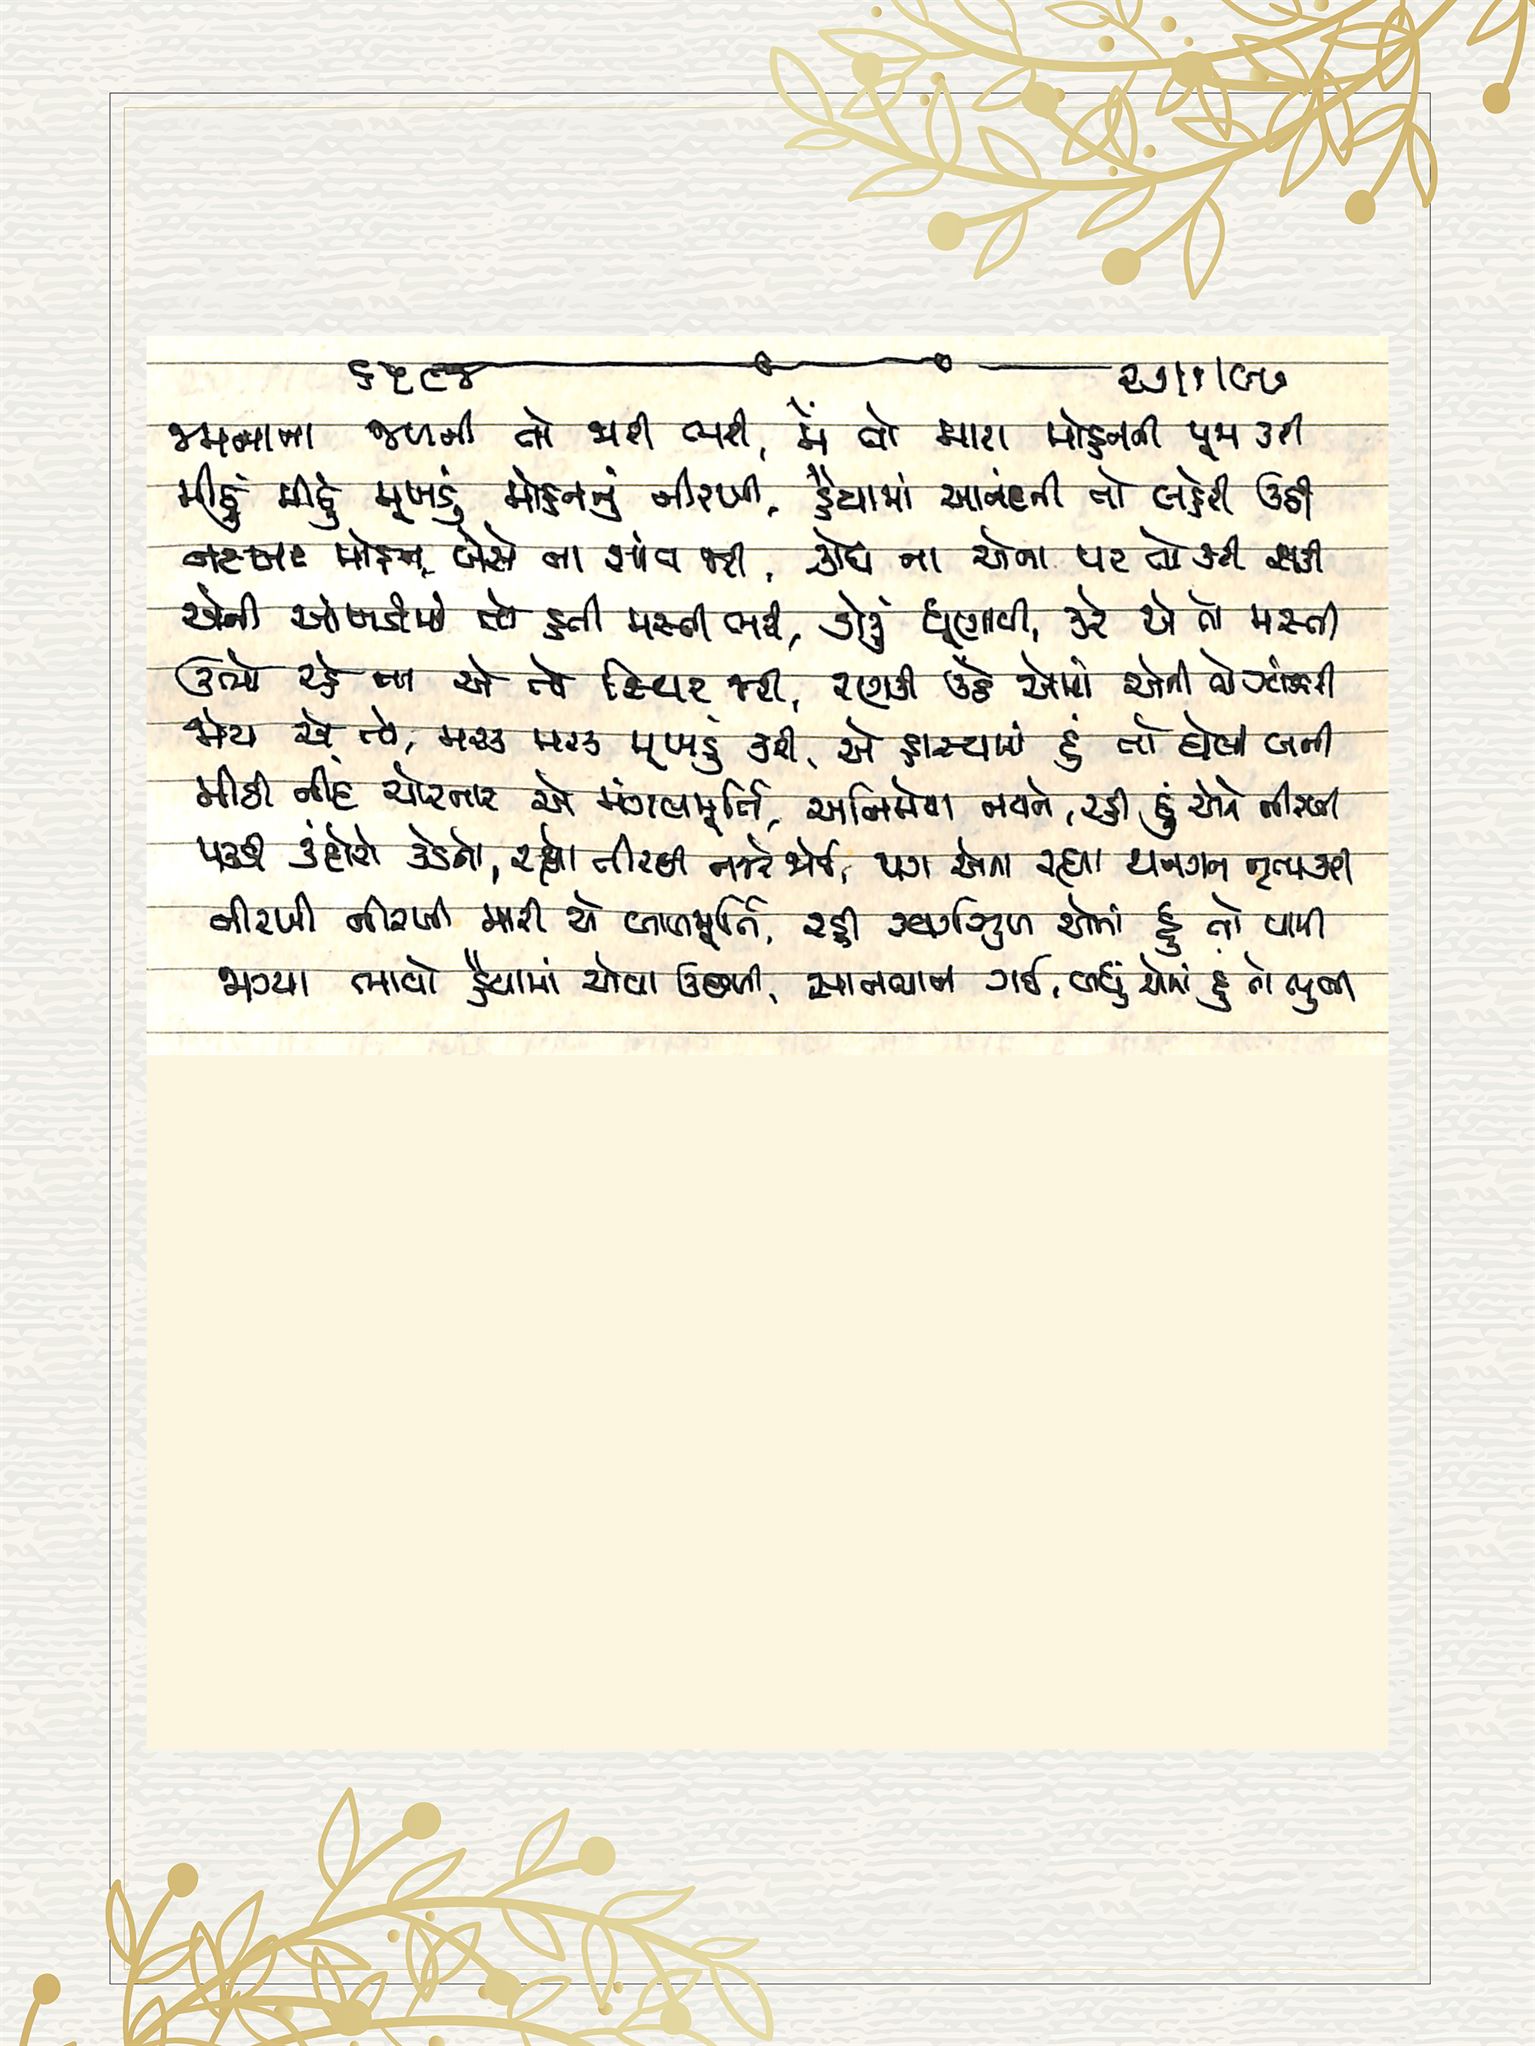 ૬૫૯૪ ૨૭/૧/૯૭
જમનાના જળની તો ઝારી ભરી, મેં તો મારા મોહનની પૂજા કરી
મીઠું મીઠું મૂખડું મોહનનું નીરખી, હૈયામાં આનંદની તો લહેરી ઉઠી
નટખટ મોહન, બેસે ના શાંત જરી, ક્રોધ ના એના પર તો કરી શકી
એની આંખડીમાં તો હતી મસ્તી ભરી, ડોકું ધૂણાવી, કરે એ તો મસ્તી
ઉભો રહે ના એ તો સ્થિર જરી, રણકી ઉઠે એમાં એની તો ઝાંઝરી
જોય એ તો, મરક મરક મૂખડું કરી, એ હાસ્યમાં હું તો ઘેલી બની
મીઠી નીંદ ચોરનાર એ મંગલમૂર્તિ, અનિમેષ નયને, રહી હું એને નીરખી
પકડી કંદોરો કેડનો, રહ્યો નીરખી નજરે જોઈ, પગ એના રહ્યા થનગન નૃત્ય કરી
નીરખી નીરખી મારી એ બાળમૂર્તિ, રહી એમાં હું તો પામી
જાગ્યા ભાવો હૈયામાં એવા ઉછળી, સાનભાન ગઈ, બધું એમાં હું તો ભુલી